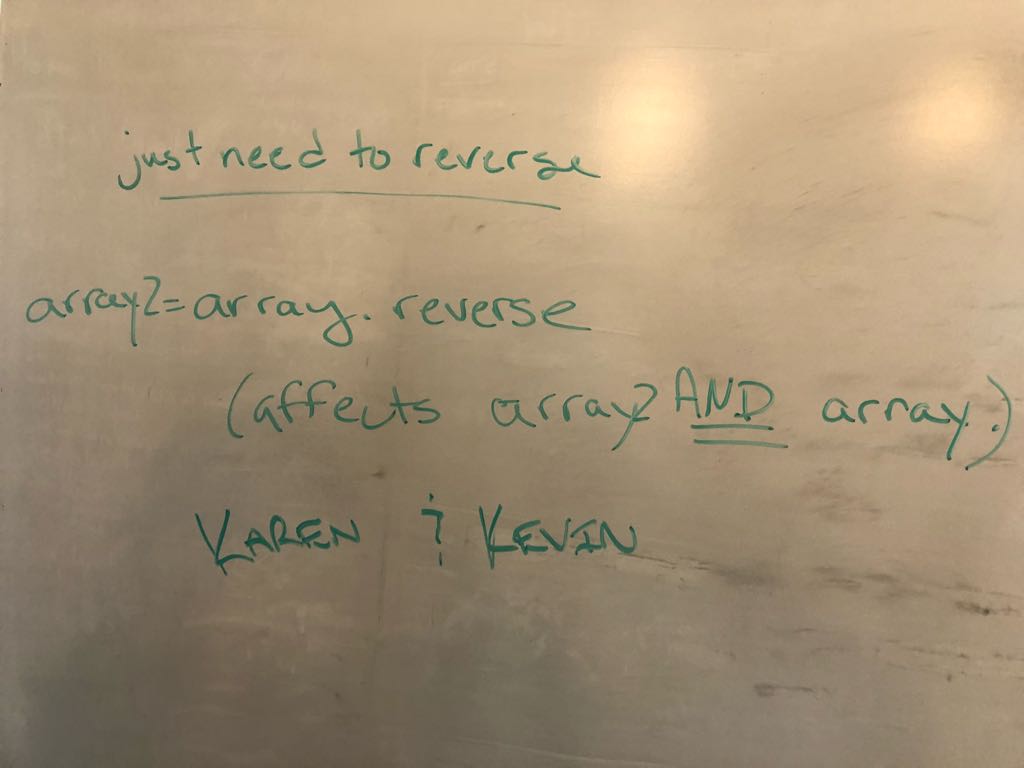 just need to reverse
array2=array.reverse
(affects array2 AND array.)
KAREN & KEVIN